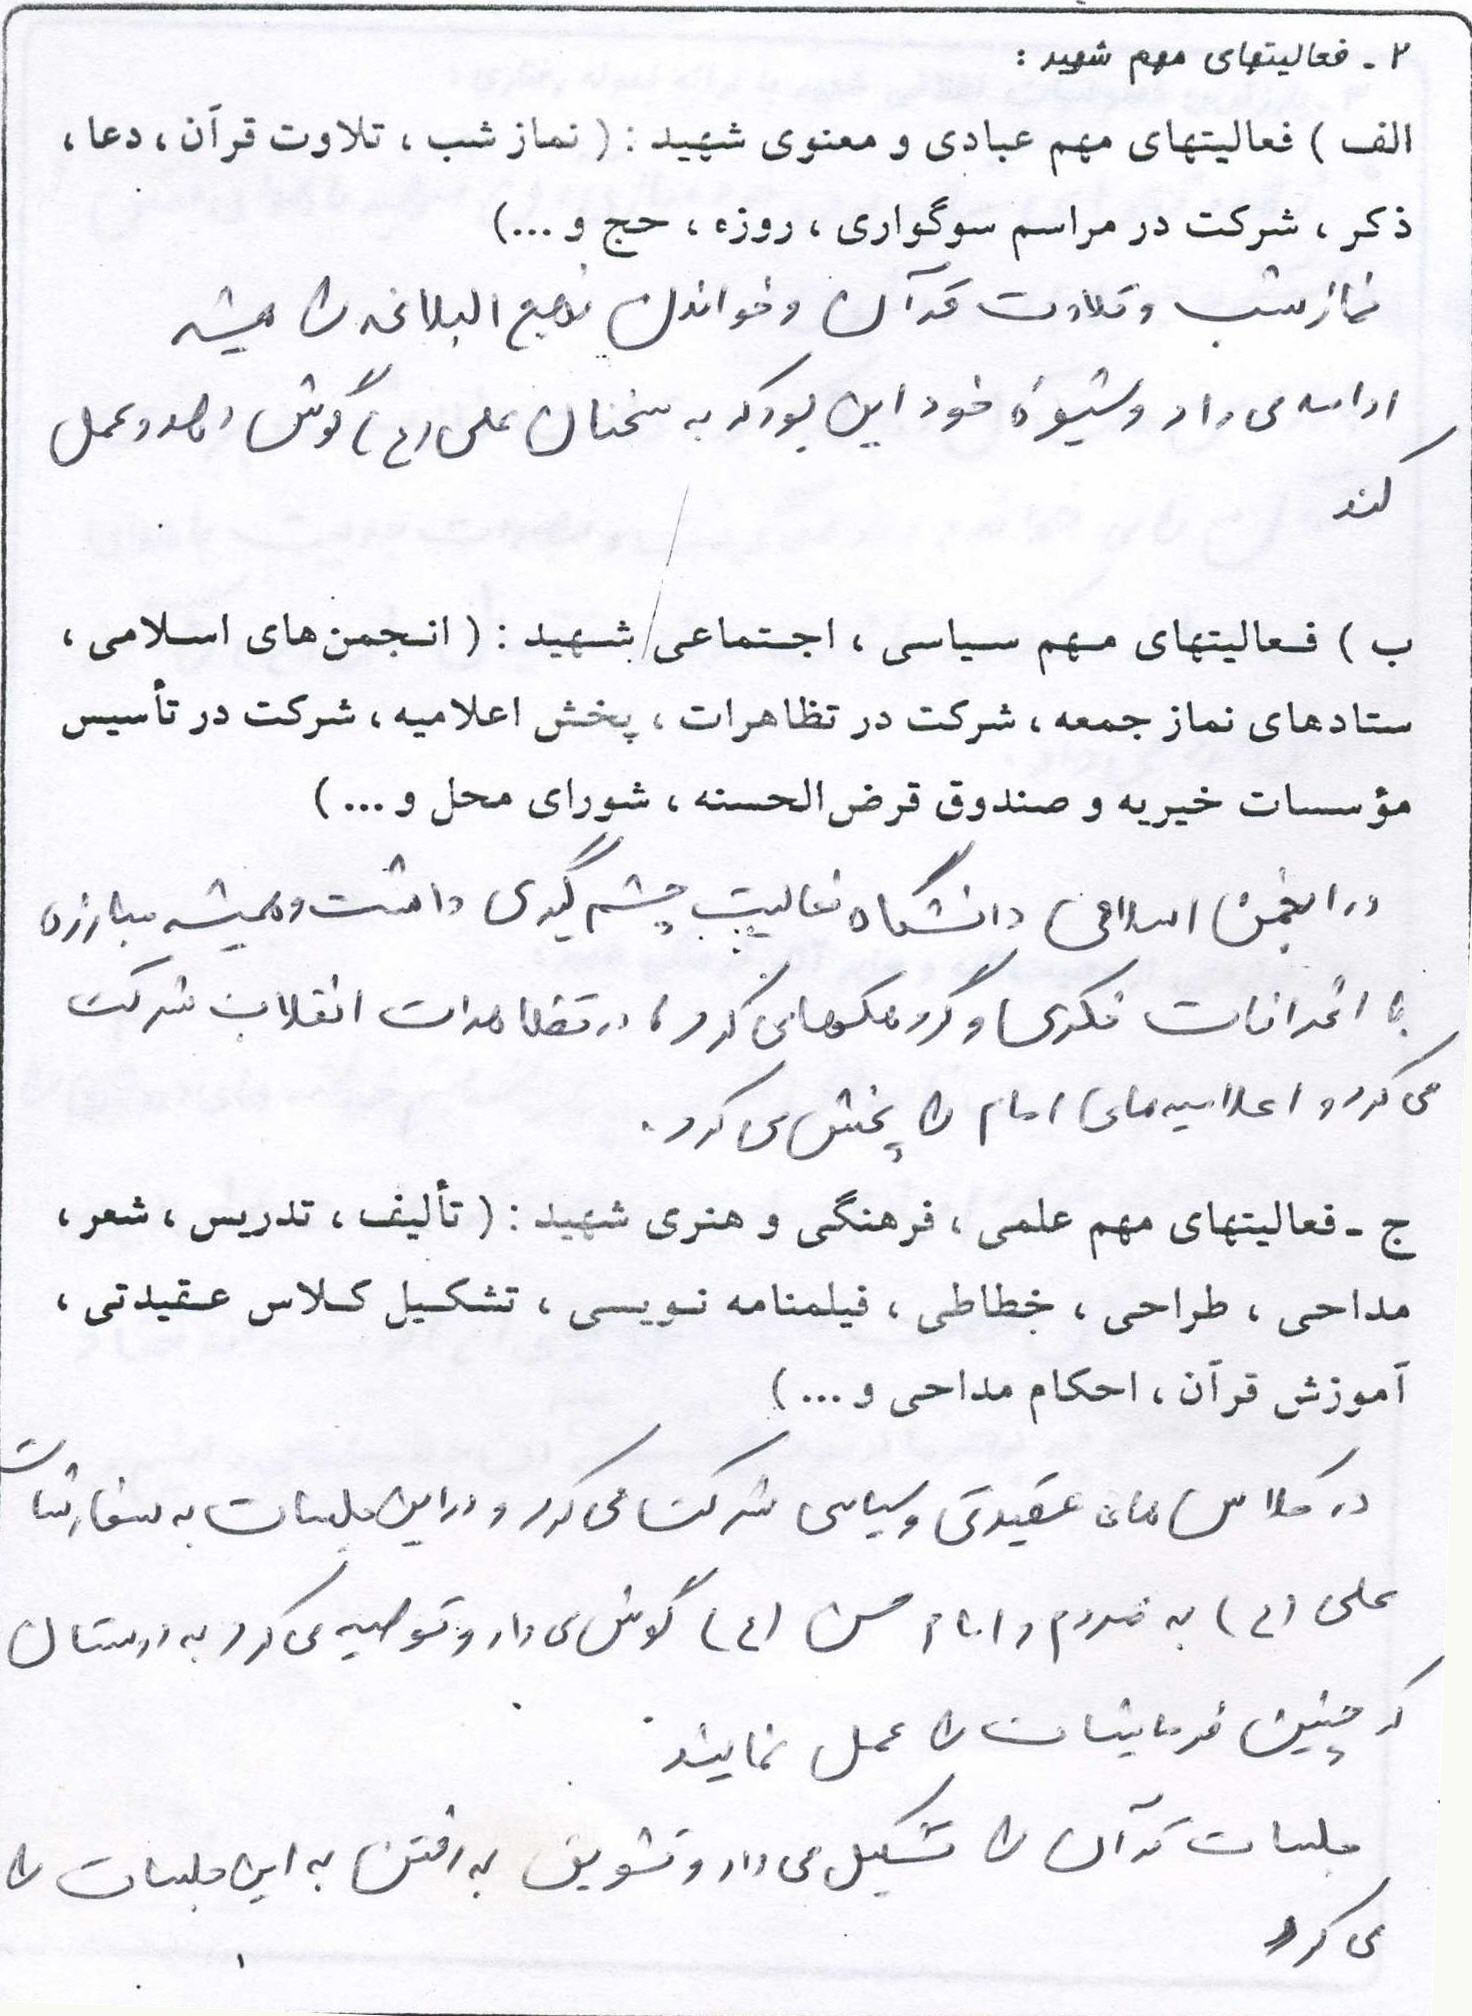 ۲ ـ فعالیتهای مهم شهید :
الف ) فعالیتهای مهم عبادی و معنوی شهید : ( نماز شب ، تلاوت قرآن ، دعا ،
ذکر ، شرکت در مراسم سوگواری ، روزه ، حج و ...)
نماز شب و تلاوت قرآن و خواندن نهج البلاغه را همیشه
ادامه می داد و شیوه خود این بود که به سخنان علی (ع) گوش دهد و عمل
کند
ب ) فعالیتهای مهم سیاسی ، اجتماعی شهید : ( انجمن‌های اسلامی ،
ستادهای نماز جمعه ، شرکت در تظاهرات ، پخش اعلامیه ، شرکت در تأسیس
مؤسسات خیریه و صندوق قرض‌الحسنه ، شورای محل و ... )
در انجمن اسلامی دانشگاه فعالیت چشم گیری داشت و همیشه مبارزه
با انحرافات فکری و گروهکهای کرد ، در تظاهرات انقلاب شرکت
می کرد و اعلامیه های امام را پخش می کرد .
ج ـ فعالیتهای مهم علمی ، فرهنگی و هنری شهید : ( تألیف ، تدریس ، شعر ،
مداحی ، طراحی ، خطاطی ، فیلمنامه نویسی ، تشکیل کلاس عقیدتی ،
آموزش قرآن ، احکام مداحی و ... )
در کلاس های عقیدتی و سیاسی شرکت می کرد و در این جلسات به سفارشات
علی (ع) به مردم و امام حسن (ع) گوش می داد و توصیه می کرد به دوستان
که چنین فرمایشات را عمل نمایند .
جلسات قرآن را تشکیل می داد و تشویق به رفتن به این جلسات را
می کرد
۱